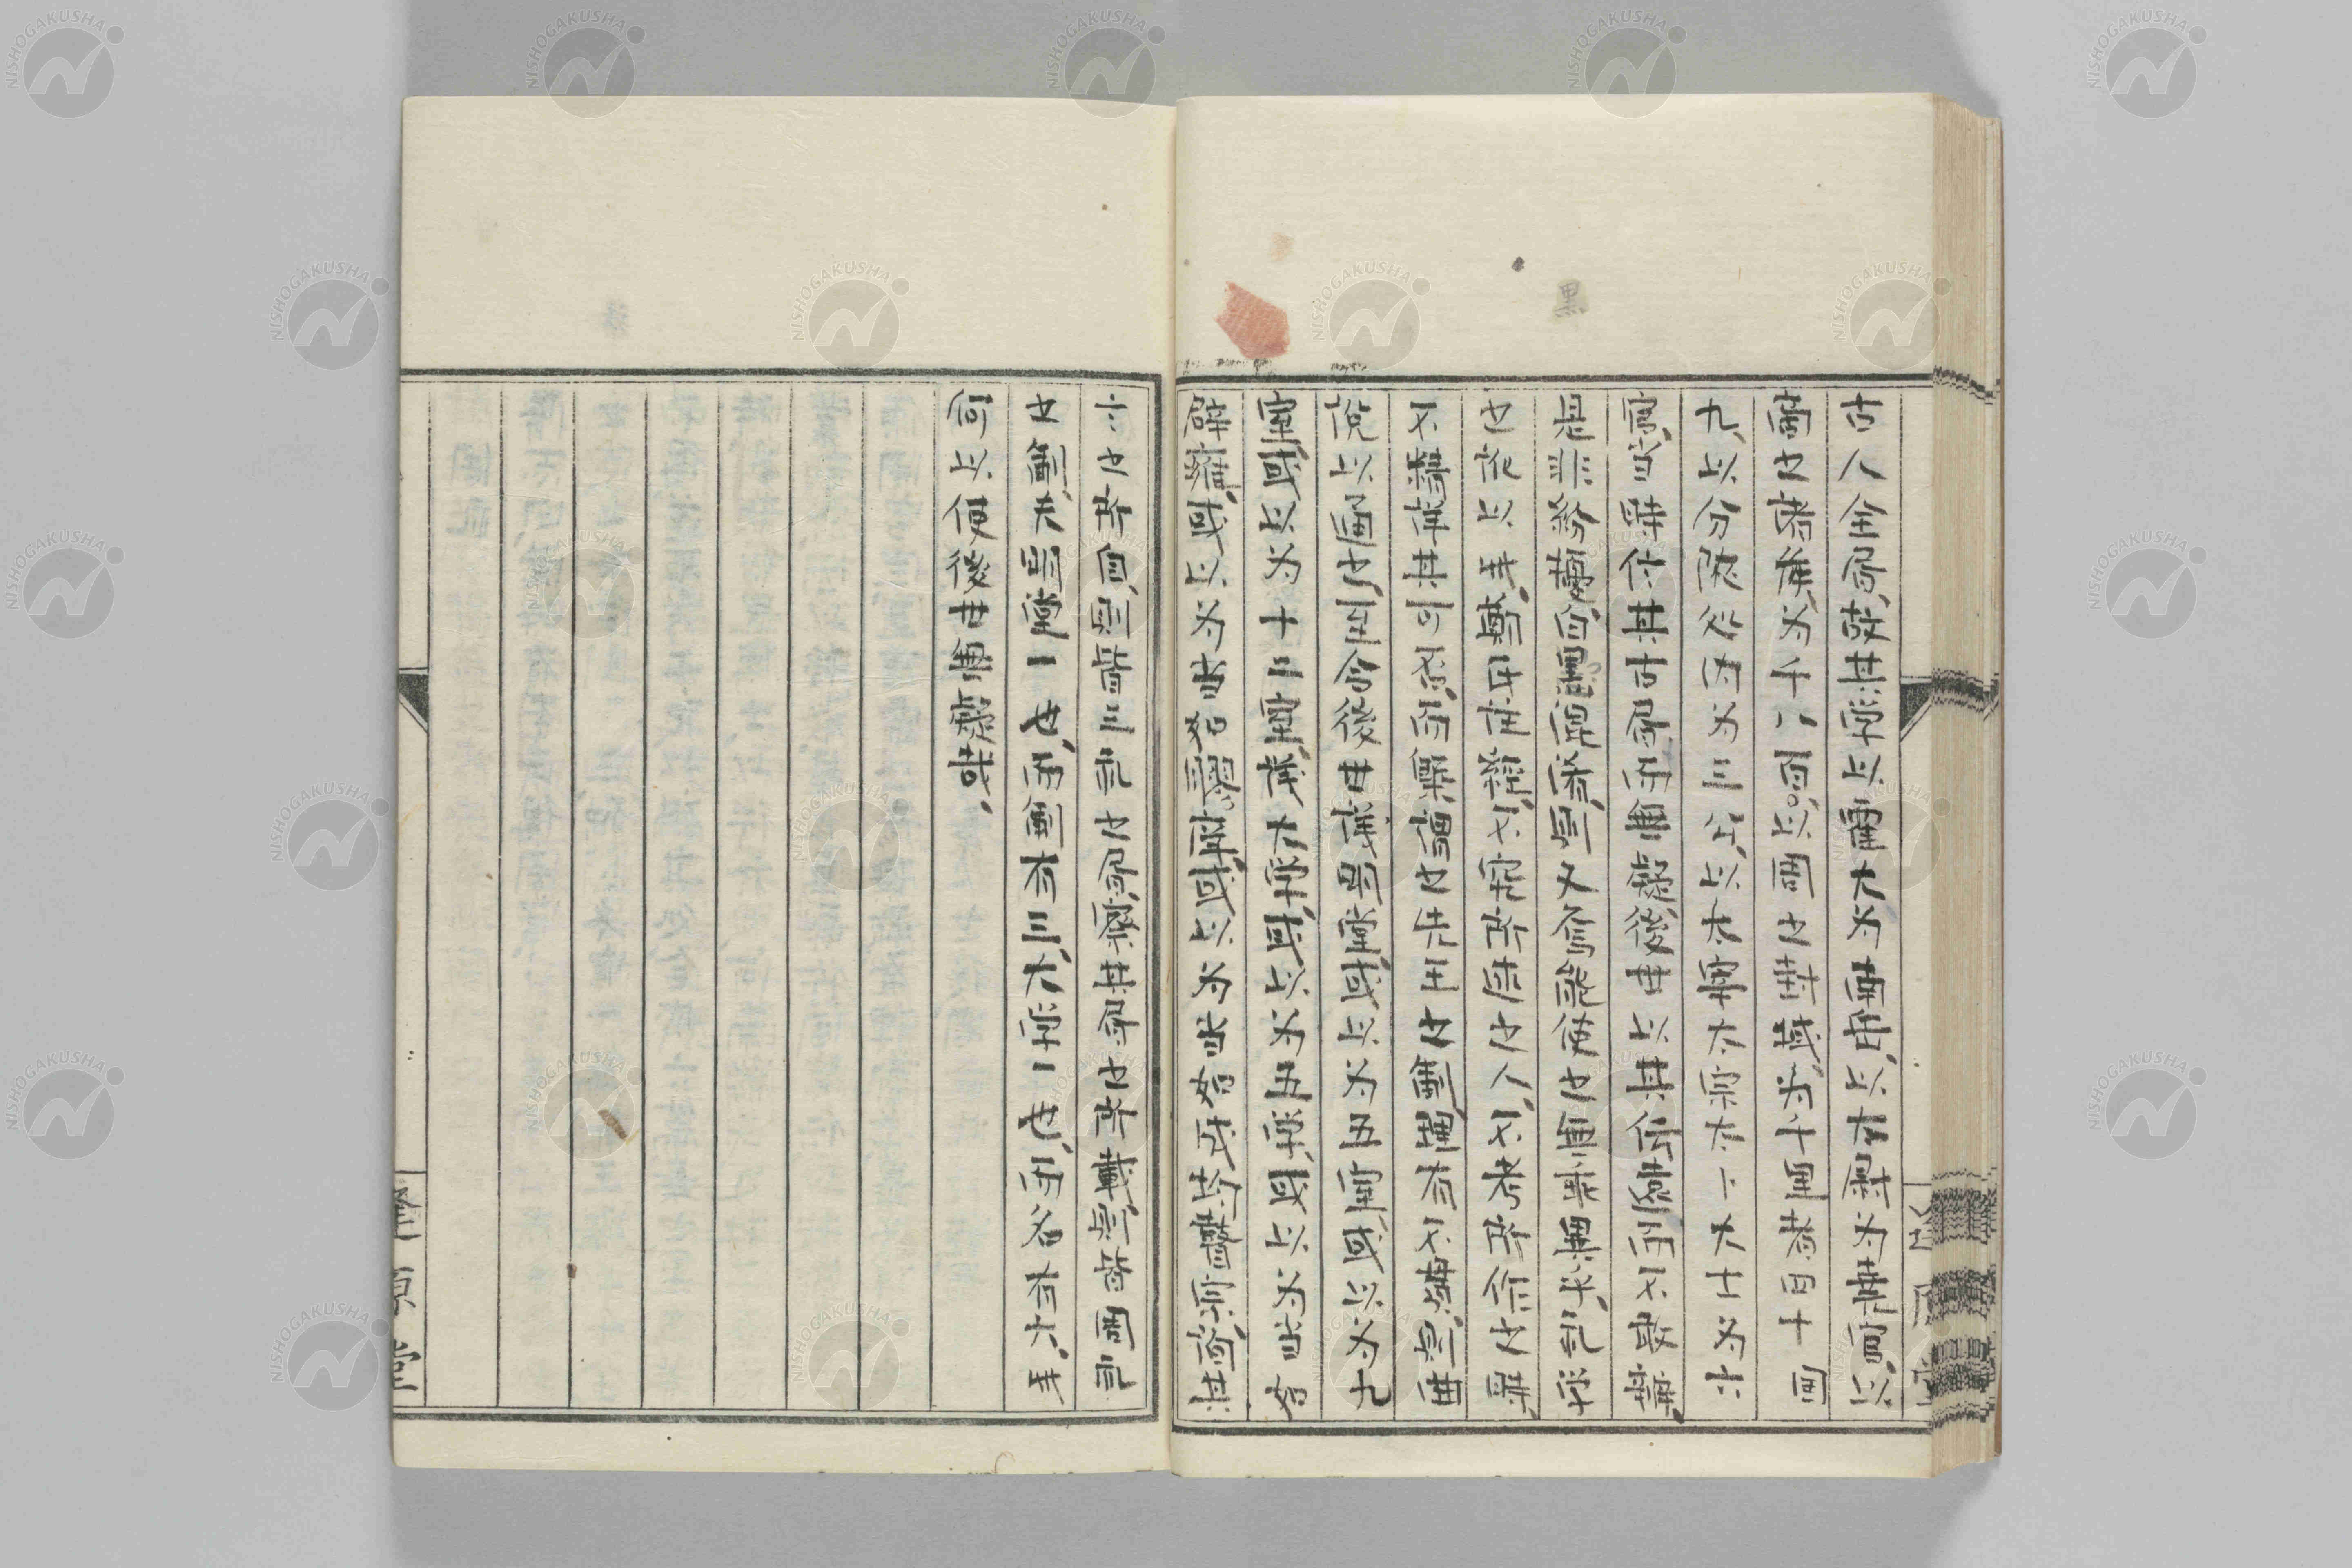 黒
古人全局、故其学以霍太为南岳、以太尉为堯官、以
商之諸侯、为千八百。以周之封域、为千里者四十国
九、以分陝処内为三公、以太宰太宗太卜大士为六
官、当時仕其古局而無疑、後世以其信遠而不敢辯、
是非紛擾、白黒混淆、則又奚能使之無乖異乎、礼学
之 以来、鄭氏注經、不究所述之人、不考所作之異、
不 择其可否、而槩謂之先王之制、理有不 、則曲
說以通之、至令後世議明堂、或以为五室、或以为九
室、或以为十二室、議大学、或以为五学、或以为当如
辟雍、或以为当如膠。庠、或以为当如成均瞽宗、 其
六之所自、則皆三礼之局、察其局之所載、則皆周礼
之制、夫明堂一也、而制有三、大学一也、而名有六、其
何以使後世無疑哉、